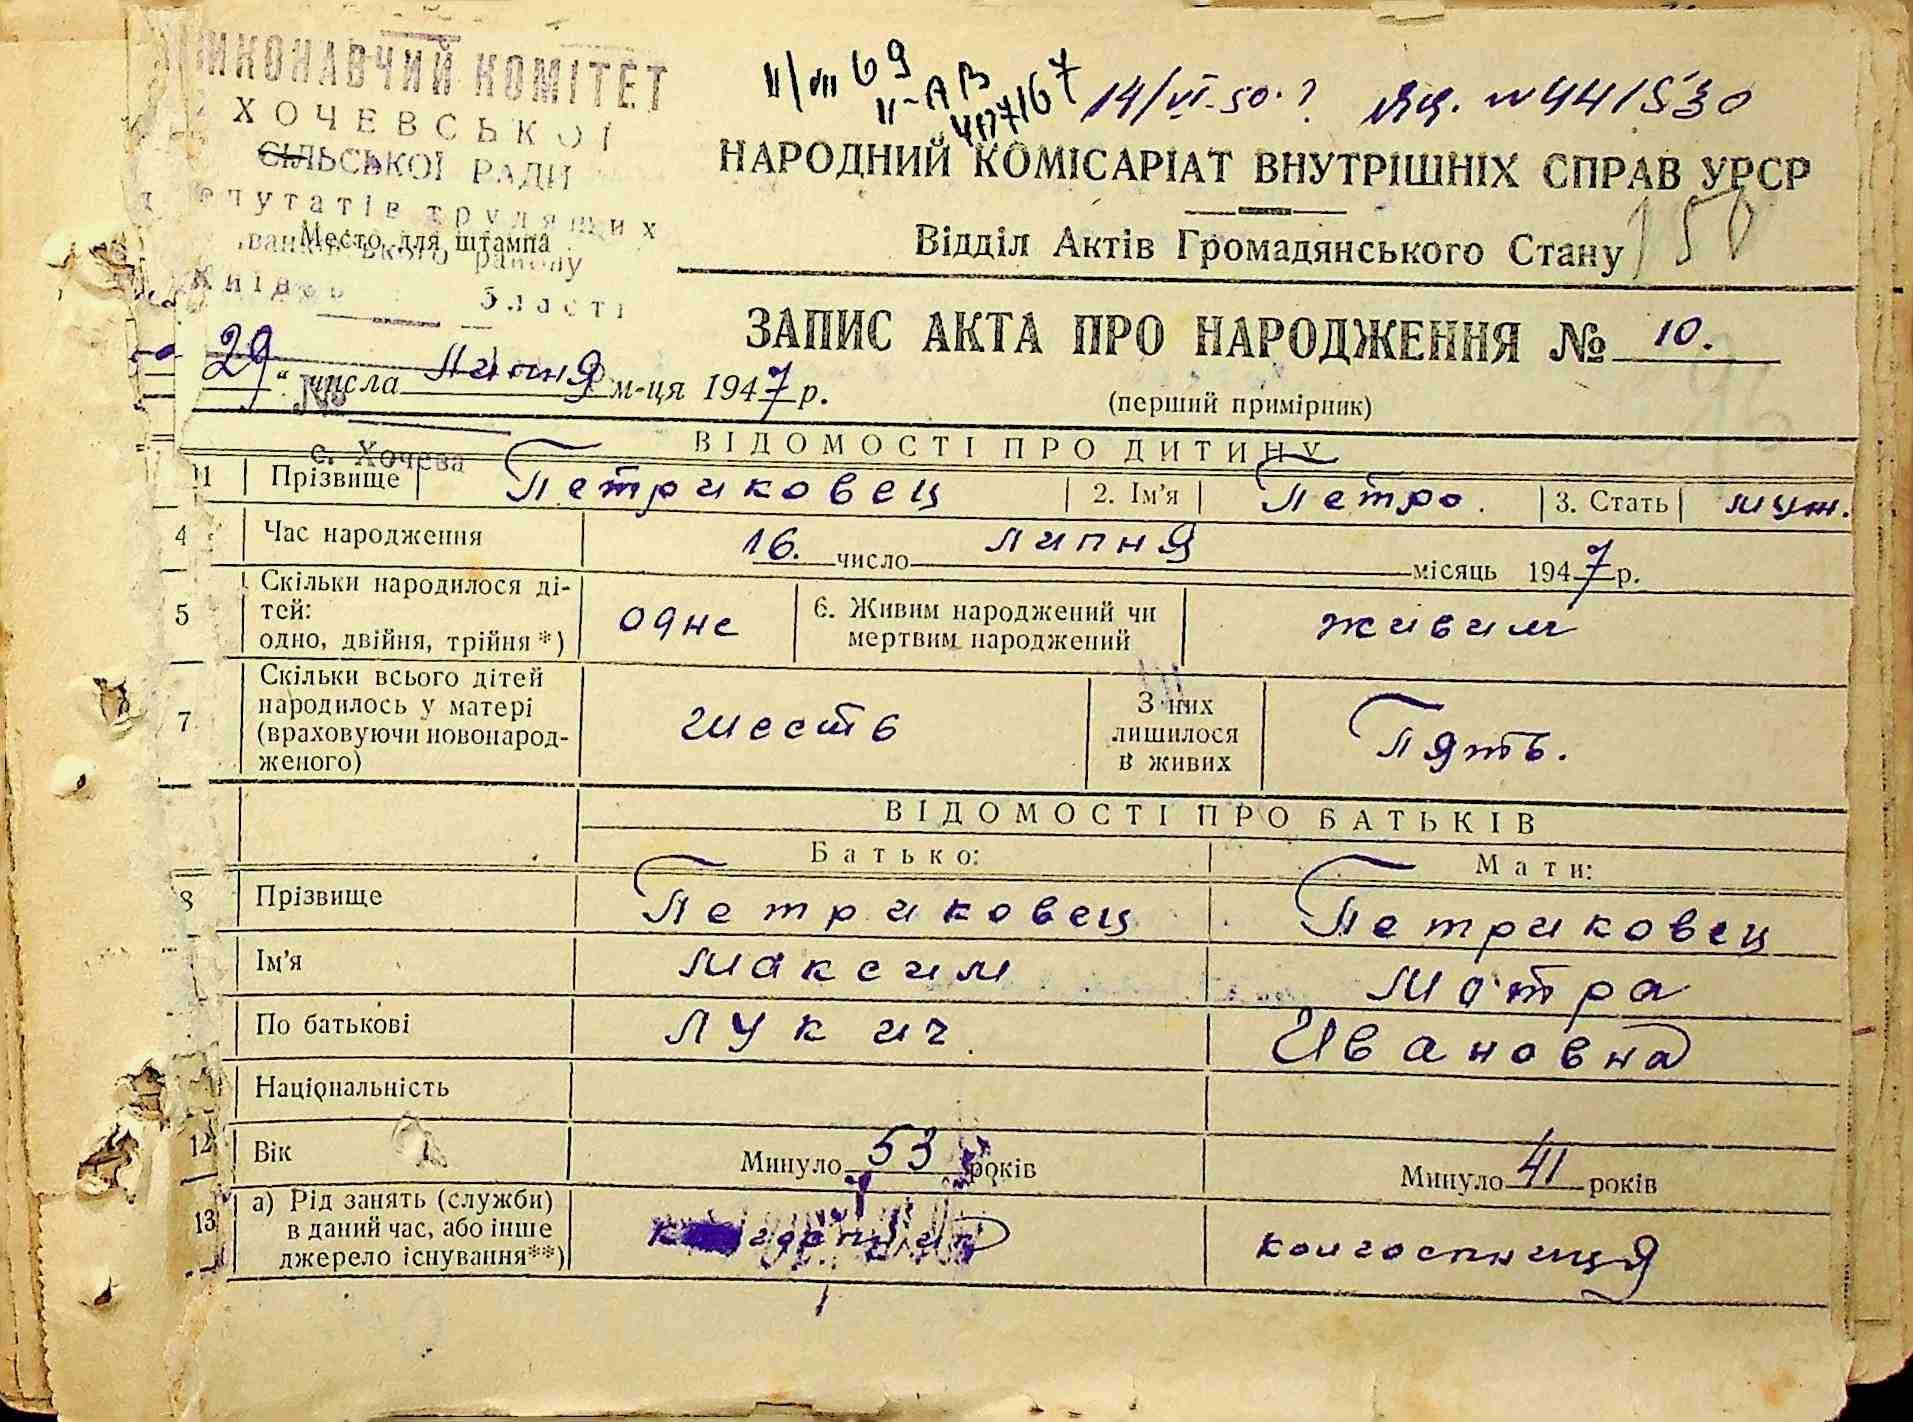 ВИКОНАВЧИЙ КОМІТЕТ
ХОЧЕВСЬКОЇ
СІЛЬСЬКОЇ РАДИ
депутатів трудящих
Іванківського району
Місто для штампа
Київської області
№
с. Хочева
II/VII 69
II-АВ
417767
14/VI-50.?
№ 441530
НАРОДНИЙ КОМІСАРІАТ ВНУТРІШНІХ СПРАВ УРСР
Відділ Актів Громадянського Стану
150
ЗАПИС АКТА ПРО НАРОДЖЕННЯ № 10.
29 " числа Липня м-ця 1947 р.
(перший примірник)
ВІДОМОСТІ ПРО ДИТИНУ
1 Прізвище Петриковец 2. Ім'я Петро. 3. Стать муж.
4 Час народження 16. число липня місяць 1947 р.
5 Скільки народилося ді-
тей:
одно, двійня, трійня *) одне 6. Живим народжений чи
мертвим народжений живим
7 Скільки всього дітей
народилось у матері
(враховуючи новонарод-
женого) шесть З них
лишилося
в живих Пять.
ВІДОМОСТІ ПРО БАТЬКІВ
Батько: Мати:
8 Прізвище Петриковец Петриковец
Ім'я Максим Мотра
По батькові Лукич Ивановна
Національність
12 Вік Минуло 53 років Минуло 41 років
13 а) Рід занять (служби)
в даний час, або інше
джерело існування**) колгоспниця